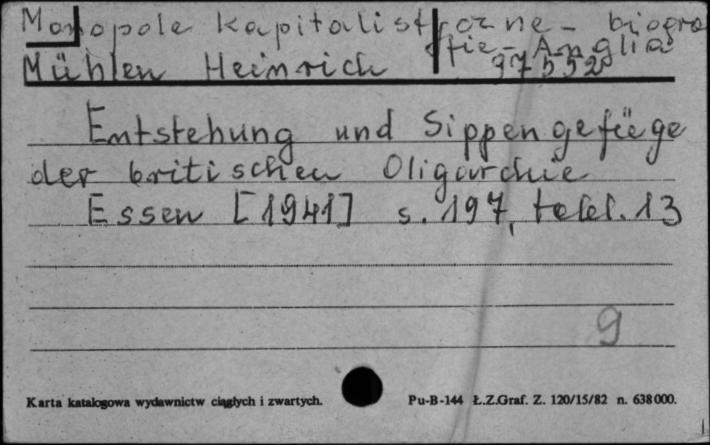 Monopole kapitalistyczne - biogra
fie - Anglia
Mühlen Heinrich 97552
Entstehung und Sippengefüge
der britischen Oligarchie
Essen [1941] s. 197, tebl. 13
9
Karta katalogowa wydawnictw ciągłych i zwartych. Pu-B-144 Ł.Z.Graf. Z. 120/15/82 n. 638000.